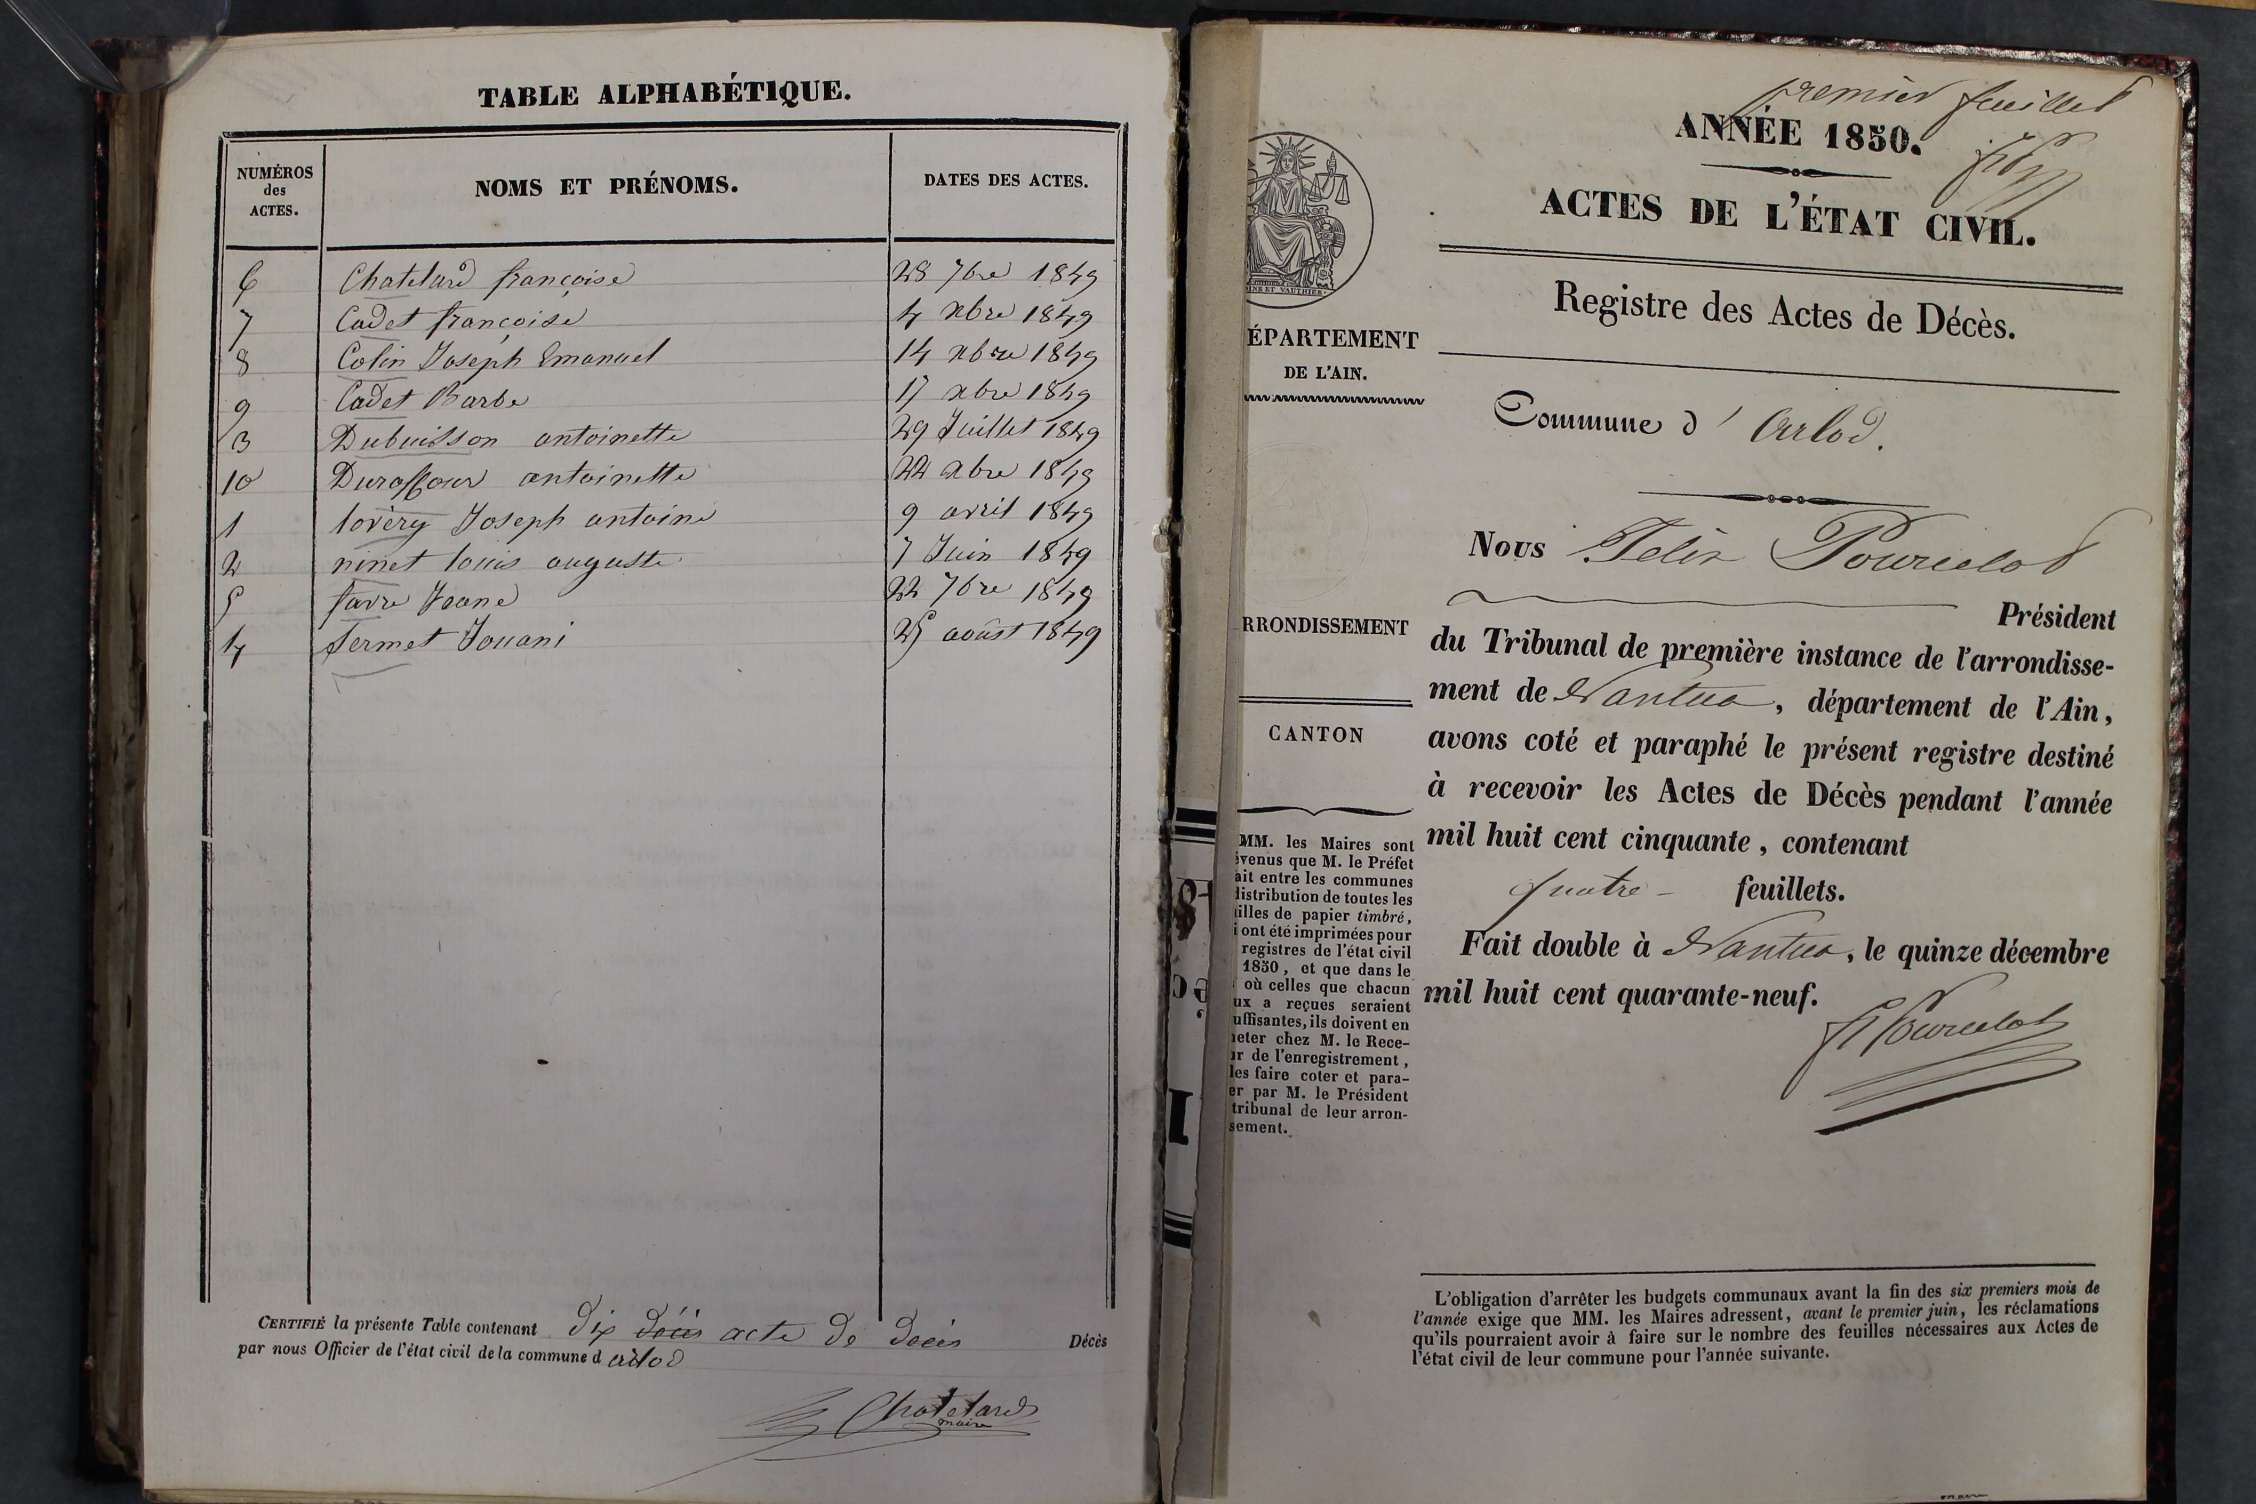 TABLE ALPHABÉTIQUE.
NUMÉROS des ACTES. NOMS ET PRÉNOMS. DATES DES ACTES.
6 Chatelard françoise 28 7bre 1849
7 Cadet françoise 4 xbre 1849
8 Colin Joseph Emanuel 14 xbre 1849
9 Cadet Barbe 17 xbre 1849
3 Dubuisson antoinette 29 Juillet 1849
10 Duraffour antoinette 22 xbre 1849
1 lovéry Joseph antoine 9 avril 1849
2 ninet louis auguste 7 Juin 1849
5 favre Jeane 22 7bre 1849
4 fermet Jouani 25 août 1849
CERTIFIÉ la présente Table contenant dix décès acte de décès Décès
par nous Officier de l'état civil de la commune d arlod
Chatelard
maire
premier feuillet
ANNÉE 1850.
ACTES DE L'ÉTAT CIVIL.
Registre des Actes de Décès.
Commune d' Arlod.
Nous Félix Pourcelot
Président
du Tribunal de première instance de l'arrondisse-
ment de Nantua, département de l'Ain,
avons coté et paraphé le présent registre destiné
à recevoir les Actes de Décès pendant l'année
mil huit cent cinquante, contenant
quatre - feuillets.
Fait double à Nantua, le quinze décembre
mil huit cent quarante-neuf.
f Pourcelot
ÉPARTEMENT
DE L'AIN.
RRONDISSEMENT
CANTON
MM. les Maires sont
évenus que M. le Préfet
ait entre les communes
distribution de toutes les
illes de papier timbré,
i ont été imprimées pour
registres de l'état civil
1850, et que dans le
où celles que chacun
ux a reçues seraient
uffisantes, ils doivent en
heter chez M. le Rece-
ur de l'enregistrement,
les faire coter et para-
er par M. le Président
tribunal de leur arron-
sement.
L'obligation d'arrêter les budgets communaux avant la fin des six premiers mois de
l'année exige que MM. les Maires adressent, avant le premier juin, les réclamations
qu'ils pourraient avoir à faire sur le nombre des feuilles nécessaires aux Actes de
l'état civil de leur commune pour l'année suivante.